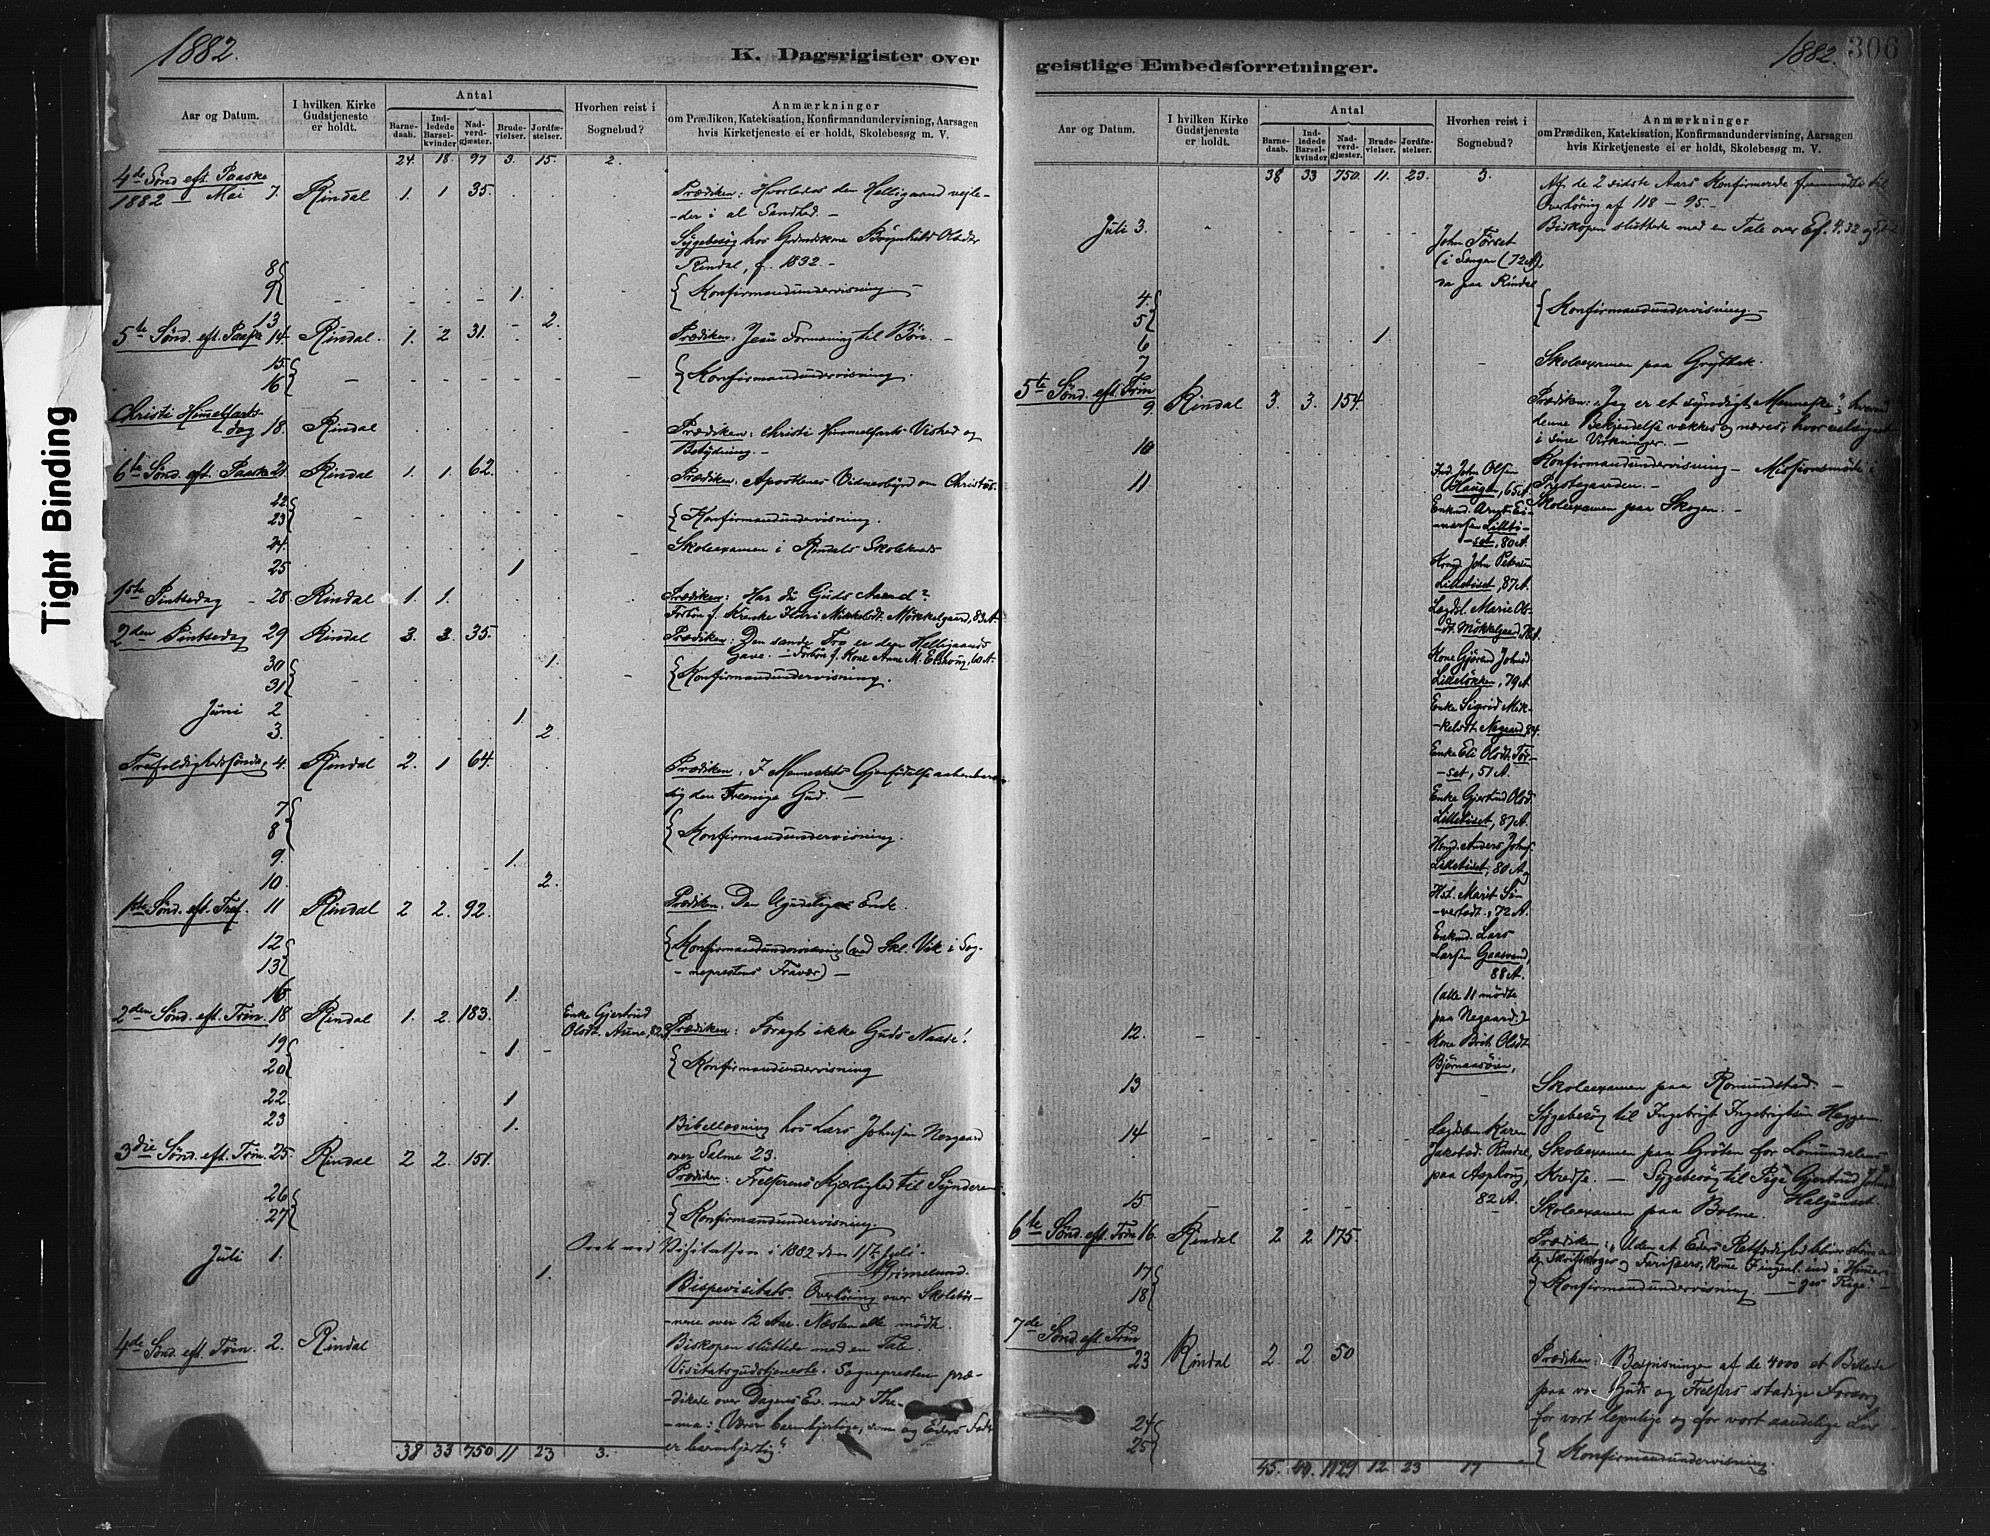 1882.
K. Dagsrigister over
Aar og Datum.
I hvilken Kirke Gudstjeneste er holdt.
Antal
Barnedaab.
Indledede Barselkvinder
Nadverdgjæster.
Brudevielser.
Jordfæstelser.
Hvorhen reist i Sognebud?
Anmærkninger
om Prædiken, Katekisation, Konfirmandundervisning, Aarsagen
hvis Kirketjeneste ei er holdt, Skolebesøg m. V.
24. 18. 97 3. 15. 2.
4de Sønd eft. Paaske
1882 Mai 7. Rindal 1. 1 35. Prædiken: Hvorledes den Helligaand vejle-
-der i al Sandhed. –
Sygebesøg hos
Rindal, f. 1832. –
8
9 1. Konfirmandundervisning. –
13 2.
5te Sønd. eft. Paaske 14. Rindal. 1. 2 31. Prædiken: Jesu Formaning til Bøn. –
15.
16 Konfirmandundervisning.
Christi Himmelfarts-
-dag 18. Rindal Prædiken: Christi Himmelfarts Vished og
Betydning. –
6te Sønd. eft. Paaske 21. Rindal 1. 1. 62. Prædiken: Apostlenes Vidnesbyrd om Christus.
22
23 Konfirmandundervisning.
24. Skoleexamen i Rindals Skolekreds
25 1
1ste Pintsedag – 28. Rindal 1. 1. Prædiken: Har du Guds Aand?
Forbøn f. Mikkelsdt. Mökkelgaard, 83 A.
2den Pintsedag 29 Rindal 3. 3. 35. Prædiken: Den sande Tro er den Helligaands
Gave. – Forbøn f. Kone Anne M. 60 A.
30 1.
31 Konfirmandundervisning.
Juni 2 1
3. 2
Trefoldighedssøndag 4. Rindal 2. 1 64. Prædiken: I Menneskets Gjenfødelse aabenbarer
sig den Treenige Gud. –
7
8 Konfirmandundervisning.
9. 1.
10. 2.
1ste Sønd. eft. Tref. 11 Rindal 2 2. 92. Prædiken. Den Ugudeliges Ende.
12
13 Konfirmandundervisning (ved Skl. Vik i Sog-
-neprestens Fravær) –
16 1.
2den Sønd. eft. Trin. 18 Rindal 1. 2. 183. Enke Gjertrud
Olsdt. Aune, 82 Prædiken: Foragt ikke Guds Naade!
19 1.
20 Konfirmandundervisning
22. 1
23 1. Bibellæsning hos Lars Johnsen Norgaard
over Salme 23.
3die Sønd. eft. Trin. 25. Rindal 2 2. 151. Prædiken: Frelserens Kjærlighed til Syndere
26
27 Konfirmandundervisning.
Juli 1. 1. Visitatsen i 1882 den 1/7 Juli.
Grimelund.
Bispevisitats. Overhøring over Skolebør-
-nene over 12 Aar. Næsten alle mødte.
Biskopen sluttede med en Tale.
4de Sønd. eft. Trin. 2. Rindal
Visitatsgudstjeneste. Sognepresten præ-
-dikede over Dagens Ev. med The-
-ma: Vorer barmhjertige, som og Eders Fader
er barmhjertig."
38 33 750 11 23 3.
geistlige Embedsforretninger.
1882.
306
Aar og Datum.
I hvilken Kirke Gudstjeneste er holdt.
Antal
Barnedaab.
Indledede Barselkvinder
Nadverdgjæster.
Brudevielser.
Jordfæstelser.
Hvorhen reist i Sognebud?
Anmærkninger
om Prædiken, Katekisation, Konfirmandundervisning, Aarsagen
hvis Kirketjeneste ei er holdt, Skolebesøg m. V.
38 33 750. 11. 23. 3. Af de 2 sidste Aars Konfirmerede fremmødte til
Overhøring af 118 – 95. –
Juli 3. Biskopen sluttede med en Tale over Ef. 4, 32 og
John Tørset
(i Sengen (72 A),
da paa Rindal
4.
5 Konfirmandundervisning. –
6 1
7 Skoleexamen paa
5te Sønd. eft. Trin
9. Rindal 3. 3. 154. Prædiken: "Jeg er et syndigt Menneske",
denne Bekjendelse vækkes og næres, hvor velsignet
i sine Virkninger. –
10 Konfirmandundervisning – Missionsmøde i
Prestegaarden. –
11 Ind. John Olsen
Haugen, 65 A. Skoleexamen paa Skogen. –
Enkmd. Arnt Ei-
-narsen Lillebö-
-set, 80 A.
John Petersen
Lilleböset, 87 A.
Lægdsl. Marie Ols-
-dt. Mökkelgaard, 78 A.
Kone Gjören Johnsd
Lilleløkken, 79 A
Enke Sigrid Mik-
-kelsdt. Negaard, 84.
Enke Eli Olsdt. Tør-
-set, 51 A.
Enke Gjertrud Olsd.
Lilleböset, 87 A.
Anders Johns.
Lilleböset, 80 A.
Marit Si-
-vertsdt., 72 A.
Enkmd. Lars
Larsen
88 A.
(alle 11 mødte
paa Negaard.)
12. Kone Brit Olsdt
Björnaasöien,
13 Skoleexamen paa Romundstad. –
Sygebesøg til Ingebrigt Ingebrigtsen Heggem.
14 Lægdslem Karen
Jakobsd. Rindal, Skoleexamen paa Gröten for Lomundalens
paa Asphaug, Kreds. – Sygebesøg til Pige Gjertrud
82 A. Halgunset.
15 Skoleexamen paa Bolme.
6te Sønd. eft. Trin 16. Rindal 2 2 175. Prædiken: "Uden at Eders Retfærdighed bliver større end
de Skriftkloges og Farisæers, komme I ingenl. ind i Himme-
17 – ges Rige". –
18 Konfirmandundervisning.
7de Sønd. eft. Trin
23 Rindal 2. 2. 50 Prædiken: Bespisningen af de 4000 et Billede
paa vor Guds og Frelsers stadige Forsorg
for vort legemlige og for vort aandelige Liv
24
25 Konfirmandundervisning.
45. 40. 1129 12. 23 17
Tight Binding